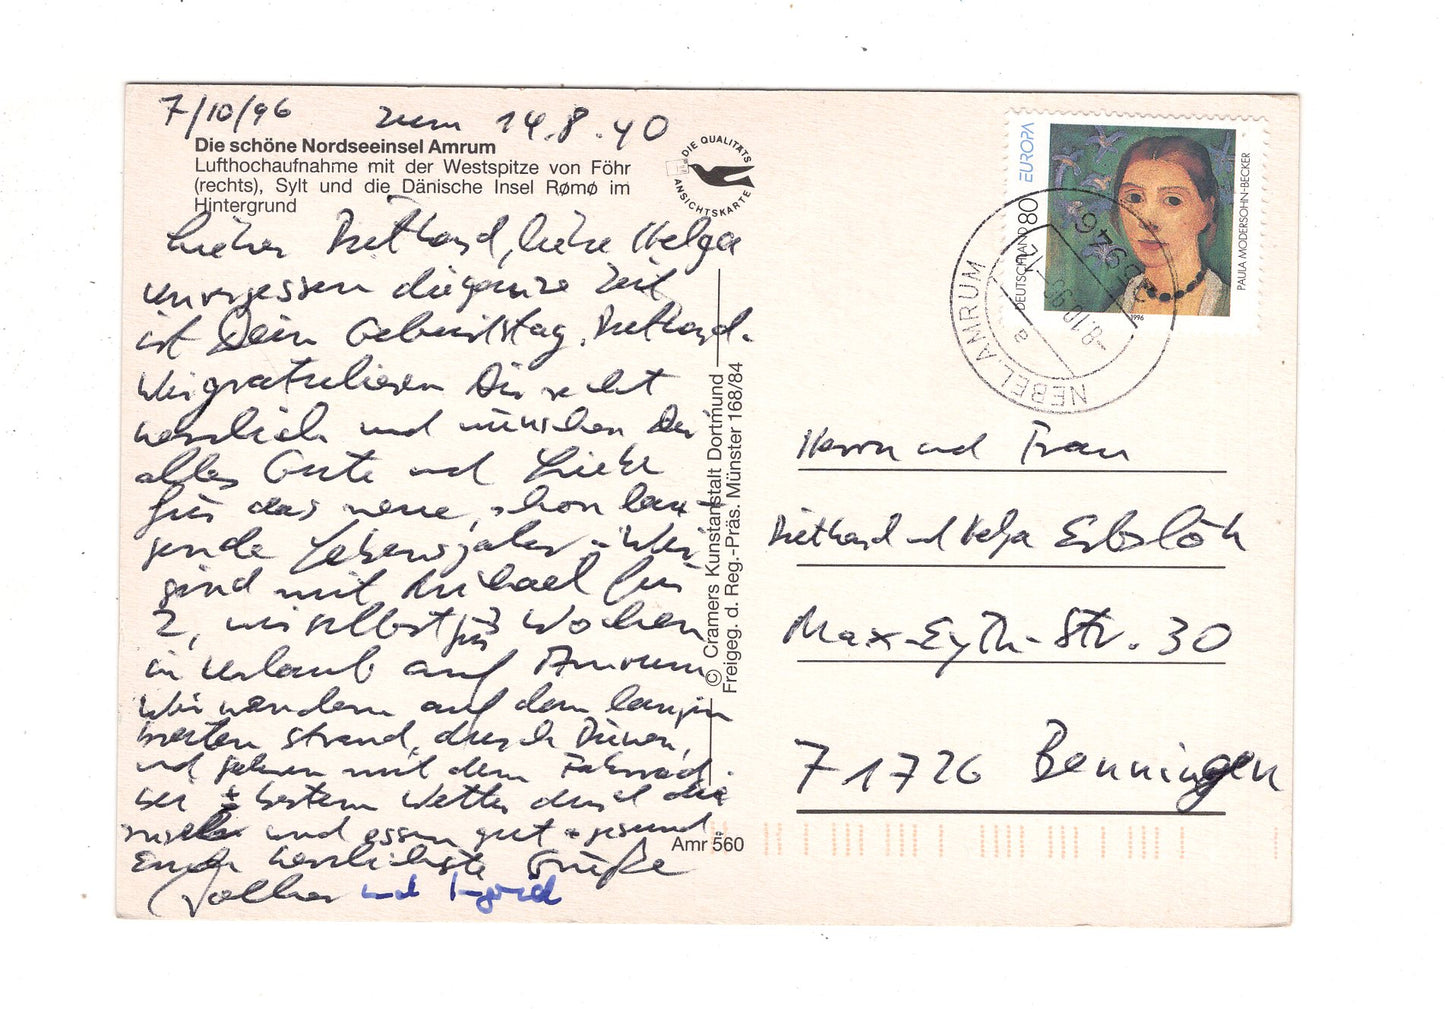 7/10/96 zum 14.8.40
Die schöne Nordseeinsel Amrum
Lufthochaufnahme mit der Westspitze von Föhr
(rechts), Sylt und die Dänische Insel Rømø im
Hintergrund
DIE QUALITÄTS
ANSICHTSKARTE
Lieber Diethard, liebe Helga
unvergessen die ganze Zeit
ist Dein Geburtstag, Diethard.
Wir gratulieren Dir recht
herzlich und wünschen Dir
alles Gute und Liebe
für das neue, schon lau-
fende Lebensjahr - Wir
sind mit Michael für
2, wir selbst für 3 Wochen
in Urlaub auf Amrum
Wir wandern auf dem langen
breiten Strand, durch Dünen,
und fahren mit dem Fahrrad
bei ± bestem Wetter durch die
Insel und essen gut + gesund.
Euch herzlichste Grüße
Volker und Ingrid
© Cramers Kunstanstalt Dortmund
Freigeg. d. Reg.-Präs. Münster 168/84
Amr 560
EUROPA
DEUTSCHLAND 80
PAULA MODERSOHN-BECKER
1996
NEBEL, AMRUM
25946
-8.10.96
a
Herrn und Frau
Diethard und Helga Erbslöh
Max-Eyth-Str. 30
71726 Benningen